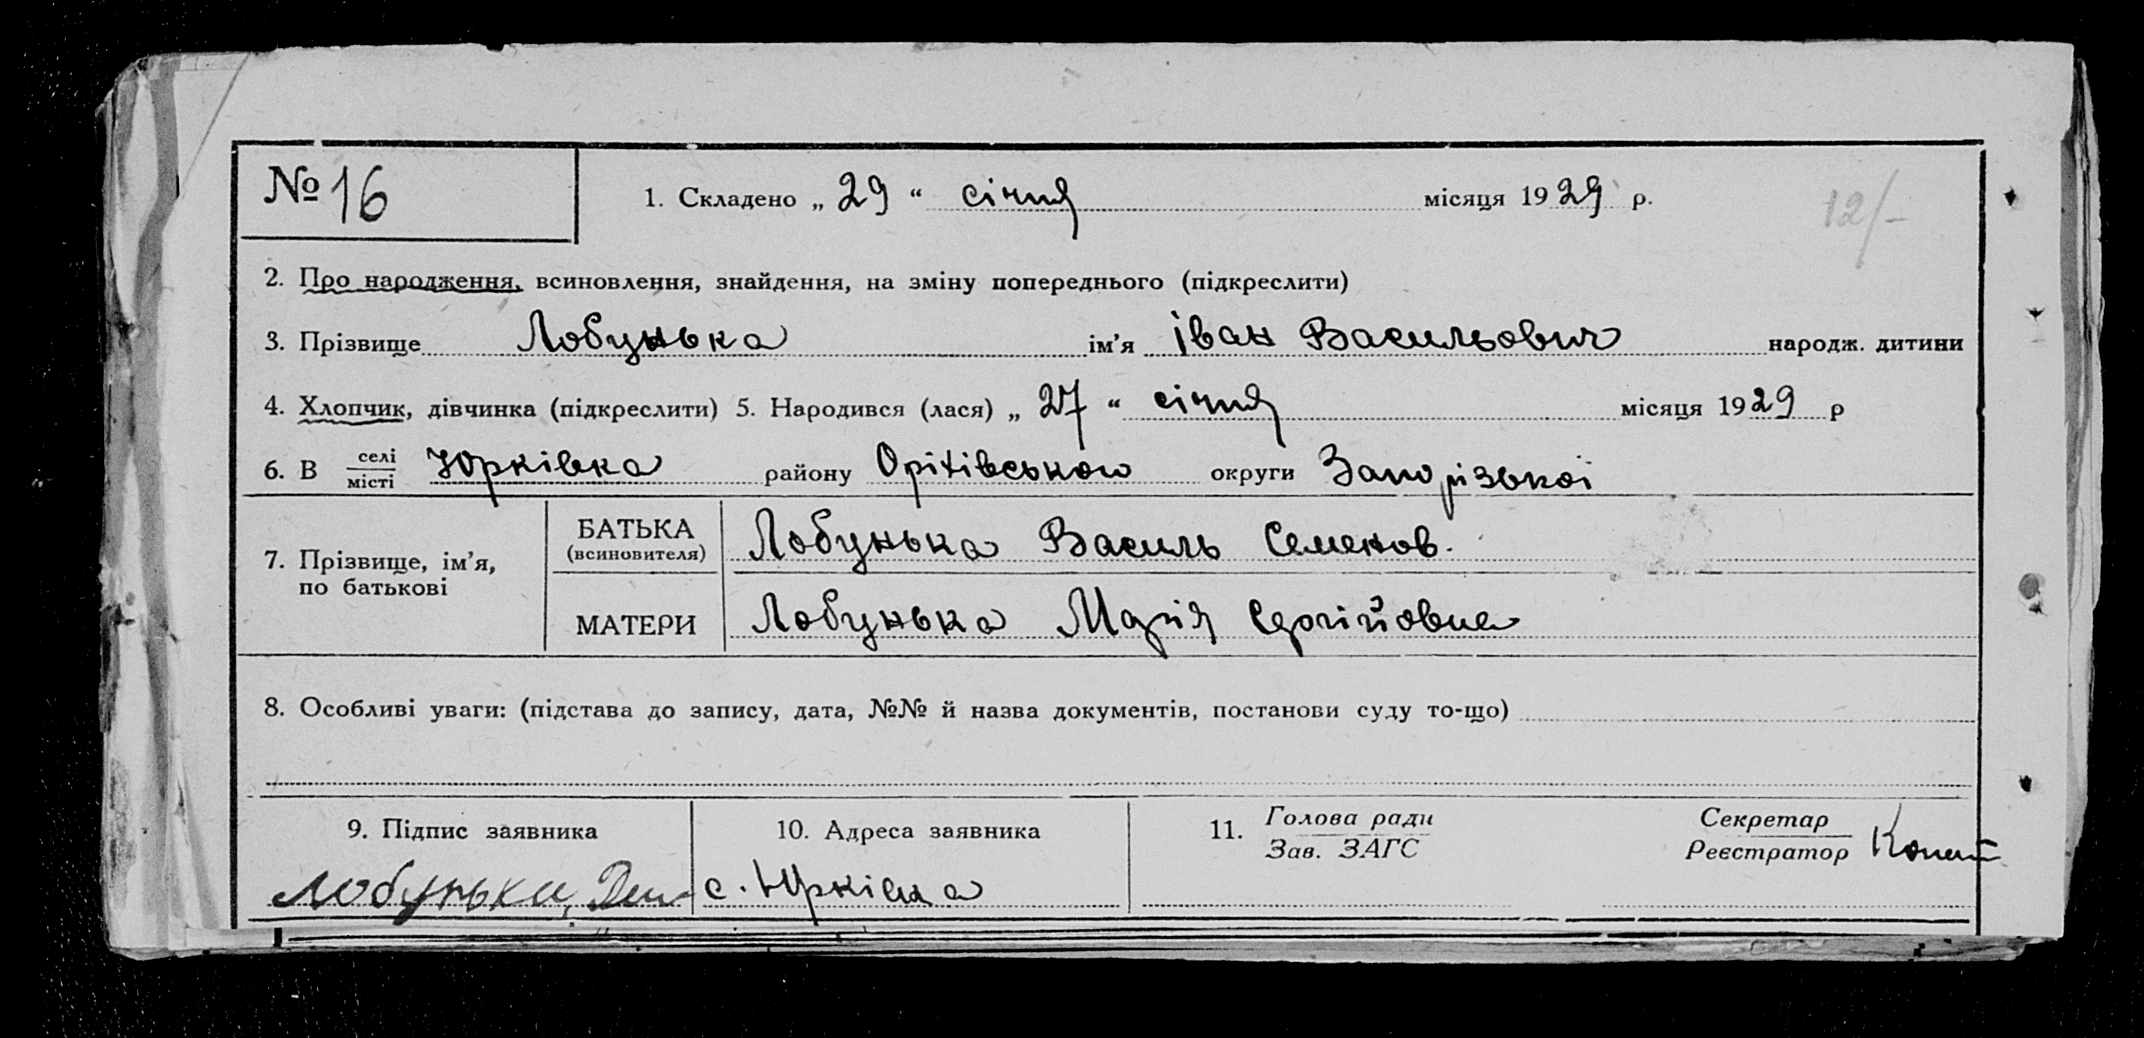 № 16
1. Складено „ 29 “ січня місяця 1929 р.
12/-
2. Про народження, всиновлення, знайдення, на зміну попереднього (підкреслити)
3. Прізвище Лобунька ім’я Іван Васильович народж. дитини
4. Хлопчик, дівчинка (підкреслити) 5. Народився (лася) „ 27 “ січня місяця 1929 р
6. В селі / місті Юрківка району Оріхівського округи Запорізької
7. Прізвище, ім’я, по батькові
БАТЬКА (всиновителя) Лобунька Василь Семенов.
МАТЕРИ Лобунька Марія Сергійовна
8. Особливі уваги: (підстава до запису, дата, №№ й назва документів, постанови суду то-що)
9. Підпис заявника
Лобунька,
10. Адреса заявника
с. Юрківка
11. Голова ради
Зав. ЗАГС
Секретар
Реєстратор